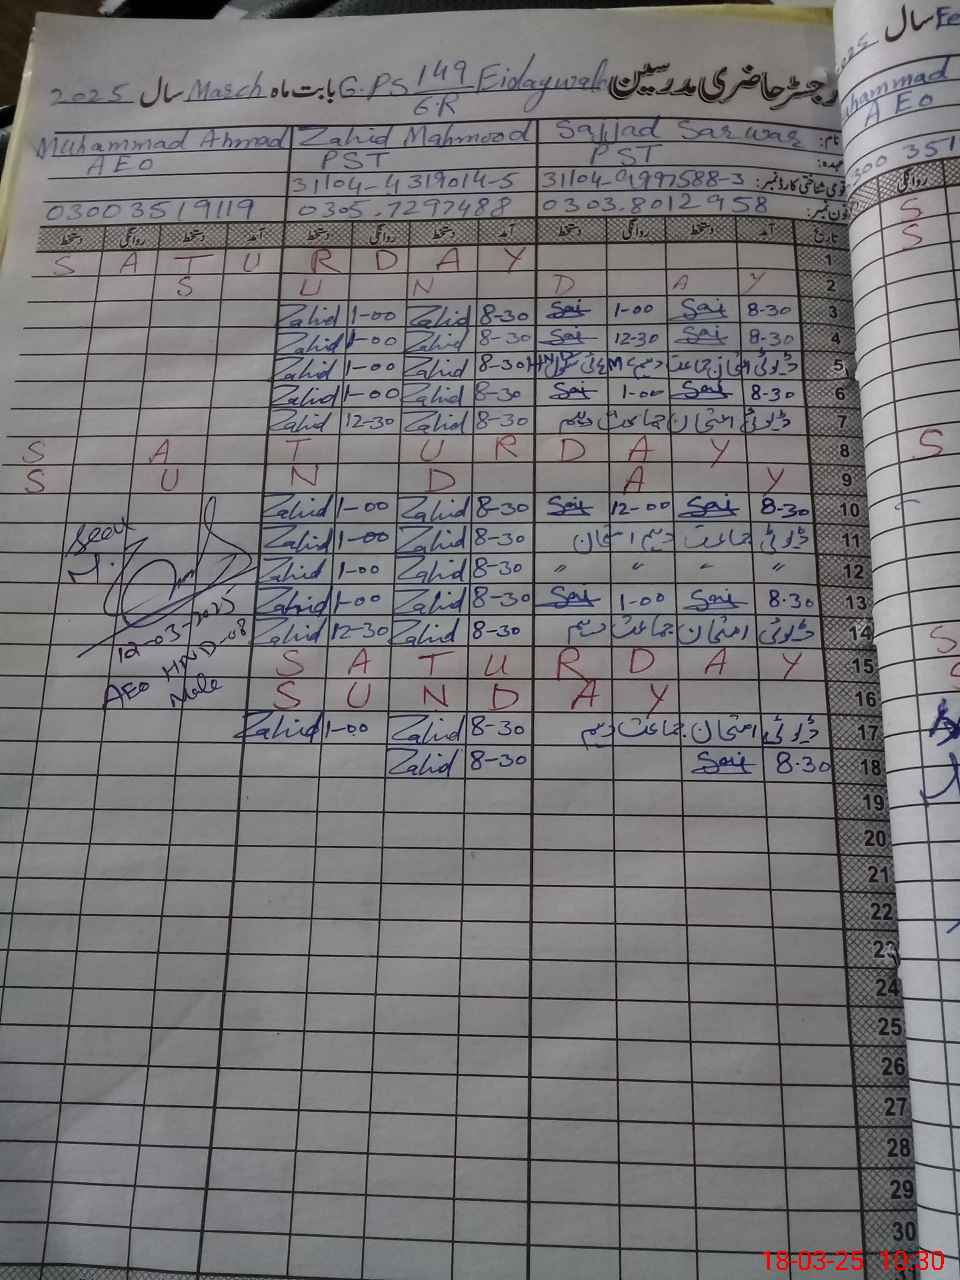 رجسٹر حاضری مدرسین G.PS 149/6.R Eidaywala بابت ماہ March سال 2025
نام: Sajjad Sarwar Zahid Mahmood Muhammad Ahmad
عہدہ: PST PST AEO
قومی شناختی کارڈ نمبر: 31104-9997588-3 31104-4319014-5
فون نمبر: 0303.8012958 0305.7297488 03003519119
تاریخ آمد دستخط روانگی دستخط آمد دستخط روانگی دستخط آمد دستخط روانگی دستخط
1 S A T U R D A Y
2 S U N D A Y
3 8-30 Saj 1-00 Saj 8-30 Zahid 1-00 Zahid
4 8-30 Saj 12-30 Saj 8-30 Zahid 1-00 Zahid
5 ڈیوٹی امتحان جماعت دہم 8-30 Zahid 1-00 Zahid
6 8-30 Saj 1-00 Saj 8-30 Zahid 1-00 Zahid
7 ڈیوٹی امتحان جماعت دہم 8-30 Zahid 12-30 Zahid
8 S A T U R D A Y
9 S U N D A Y
10 8-30 Saj 12-00 Saj 8-30 Zahid 1-00 Zahid
11 ڈیوٹی جماعت دہم امتحان 8-30 Zahid 1-00 Zahid
12 " " " " 8-30 Zahid 1-00 Zahid
13 8.30 Saj 1-00 Saj 8-30 Zahid 1-00 Zahid
14 ڈیوٹی امتحان جماعت دہم 8-30 Zahid 12-30 Zahid
Seen
12-03-2025
AEO HND-08
Male
15 S A T U R D A Y
16 S U N D A Y
17 ڈیوٹی امتحان جماعت دہم 8-30 Zahid 1-00 Zahid
18 8.30 Saj 8-30 Zahid
19
20
21
22
23
24
25
26
27
28
29
30
سال Fe
2025
uhammad
AEO
300 351
روانگی
S
S
S
S
18-03-25 10:30